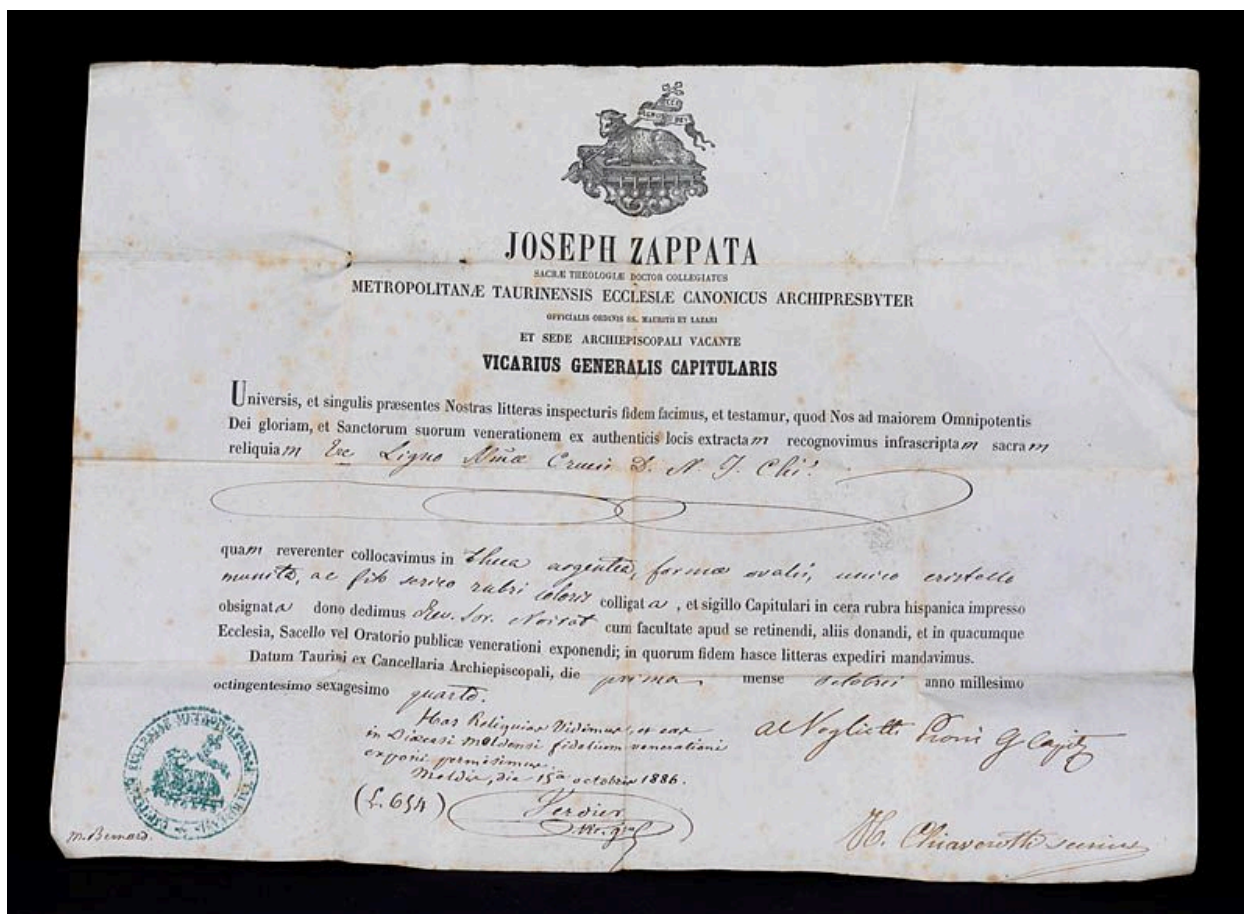 ECCE
AGNUS DEI
JOSEPH ZAPPATA
SACRÆ THEOLOGIÆ DOCTOR COLLEGIATUS
METROPOLITANÆ TAURINENSIS ECCLESIÆ CANONICUS ARCHIPRESBYTER
OFFICIALIS ORDINIS SS. MAURITII ET LAZARI
ET SEDE ARCHIEPISCOPALI VACANTE
VICARIUS GENERALIS CAPITULARIS
Universis, et singulis præsentes Nostras litteras inspecturis fidem facimus, et testamur, quod Nos ad maiorem Omnipotentis
Dei gloriam, et Sanctorum suorum venerationem ex authenticis locis extractam recognovimus infrascriptam sacram
reliquiam Exc Ligno Almæ Crucis D. N. J. Chi.
quam reverenter collocavimus in theca argentea, formæ ovalis, unico cristallo
munita, ac filo serico rubri coloris colligata, et sigillo Capitulari in cera rubra hispanica impresso
obsignata dono dedimus Rev. Sor. Noirot cum facultate apud se retinendi, aliis donandi, et in quacumque
Ecclesia, Sacello vel Oratorio publicæ venerationi exponendi; in quorum fidem hasce litteras expediri mandavimus.
Datum Taurini ex Cancellaria Archiepiscopali, die prima mense octobris anno millesimo
octingentesimo sexagesimo quarto.
Has Reliquias Vidimus, et eas
in Diœcesi Meldensi fidelium venerationi
exponi permisimus.
Meldis, die 15a octobris 1886.
(L. 654)
Verdier
Vic. gral
M. Bernard.